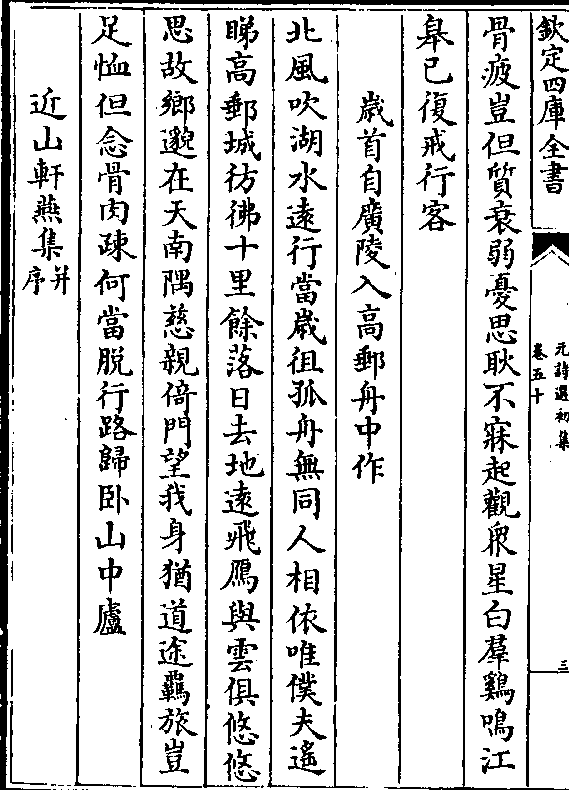 欽定四庫全書
元詩選初集
卷五十
三
骨疲豈但質衰弱憂思耿不寐起觀衆星白羣鷄鳴江
皋已復戒行客
歲首自廣陵入高郵舟中作
北風吹湖水遠行當歲徂孤舟無同人相依唯僕夫遙
睇高郵城彷彿十里餘落日去地遠飛鴈與雲俱悠悠
思故鄉邈在天南隅慈親倚門望我身猶道途羈旅豈
足恤但念骨肉疎何當脫行路歸卧山中廬
近山軒燕集并序